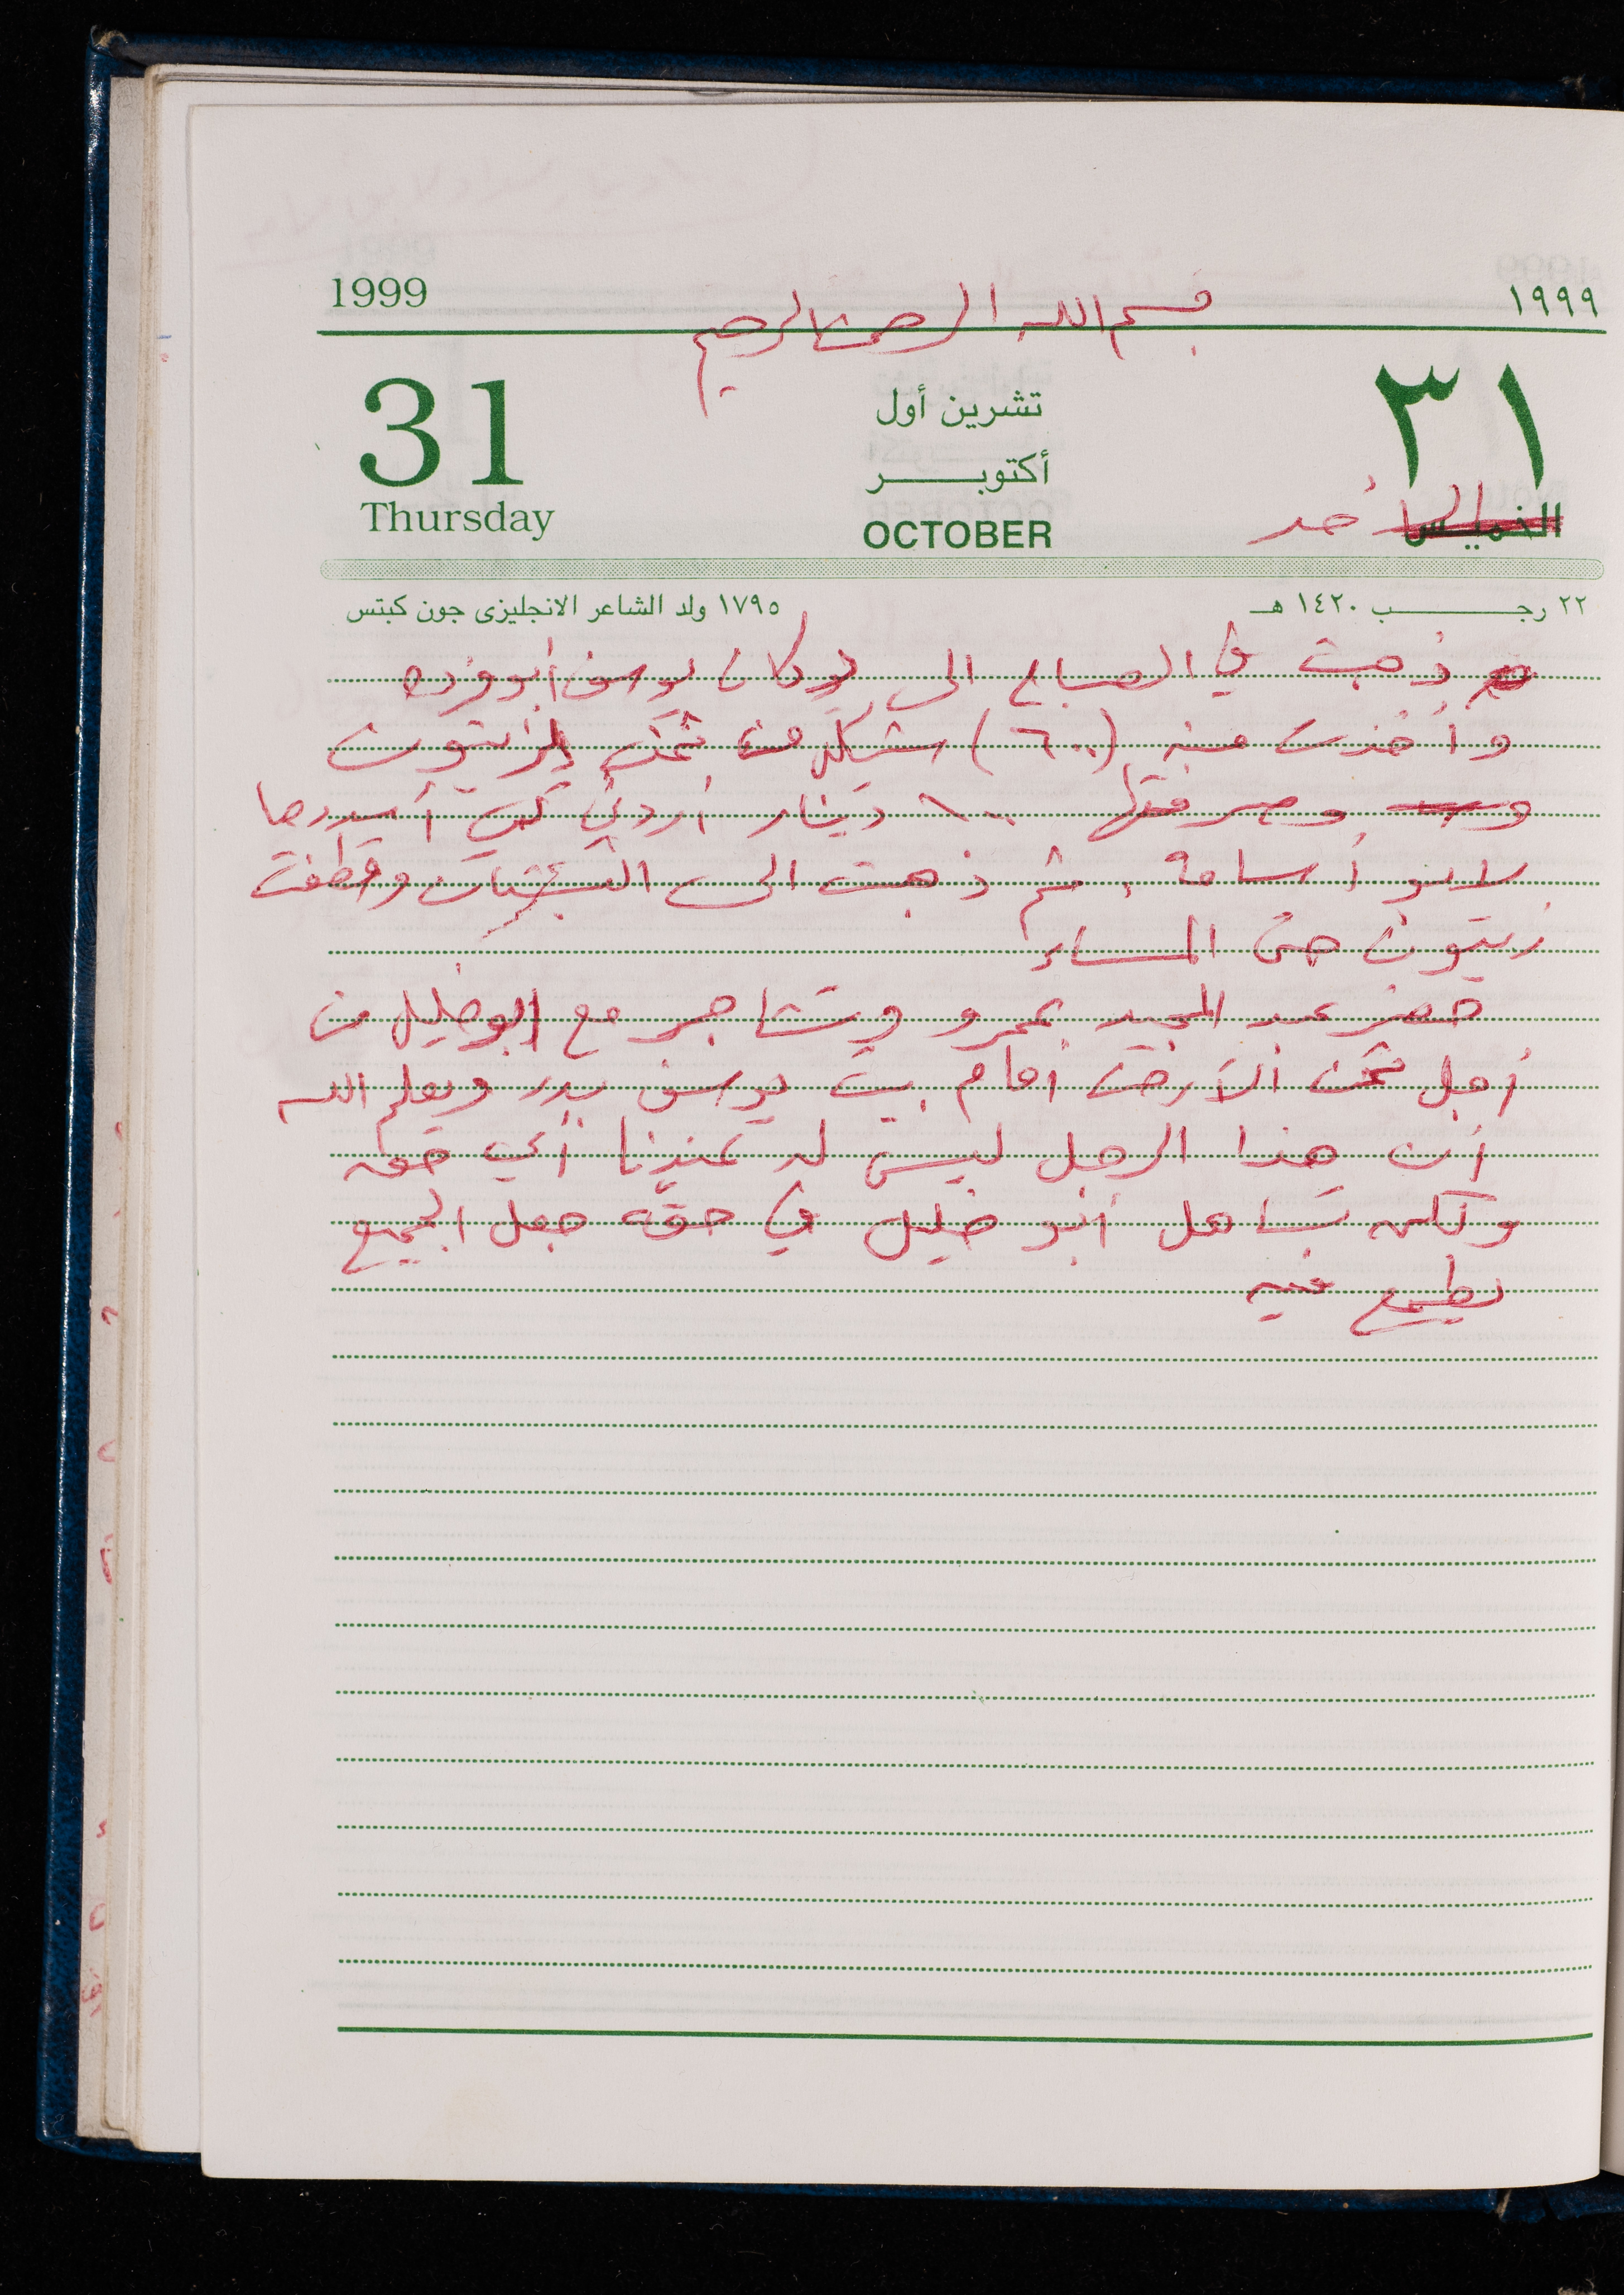 1999 بسم الله الرحمن الرحيم ١٩٩٩
31 تشرين أول ٣١
أكتوبر
Thursday OCTOBER الخميس الأحد
٢٢ رجب ١٤٢٠ هـ ١٧٩٥ ولد الشاعر الانجليزى جون كيتس
ذهبت في الصباح الى دكان يوسف أبو فرده
وأخذت منه (٦٠٠) شيكل من ثمن الزيتون
وصرفتها ١٠٠ دينار أردني لكي أسددها
لابو أسامة. ثم ذهبت الى وقطفت
زيتون حتى المساء
حضر عبد المجيد عمرو وتشاجر مع ابو خليل من
أجل ثمن الأرض أمام بيت يوسف بدر ويعلم الله
أن هذا الرجل ليس له عندنا أي حق
ولكن تساهل أبو خليل في حقه جعل الجميع
يطمع فيه